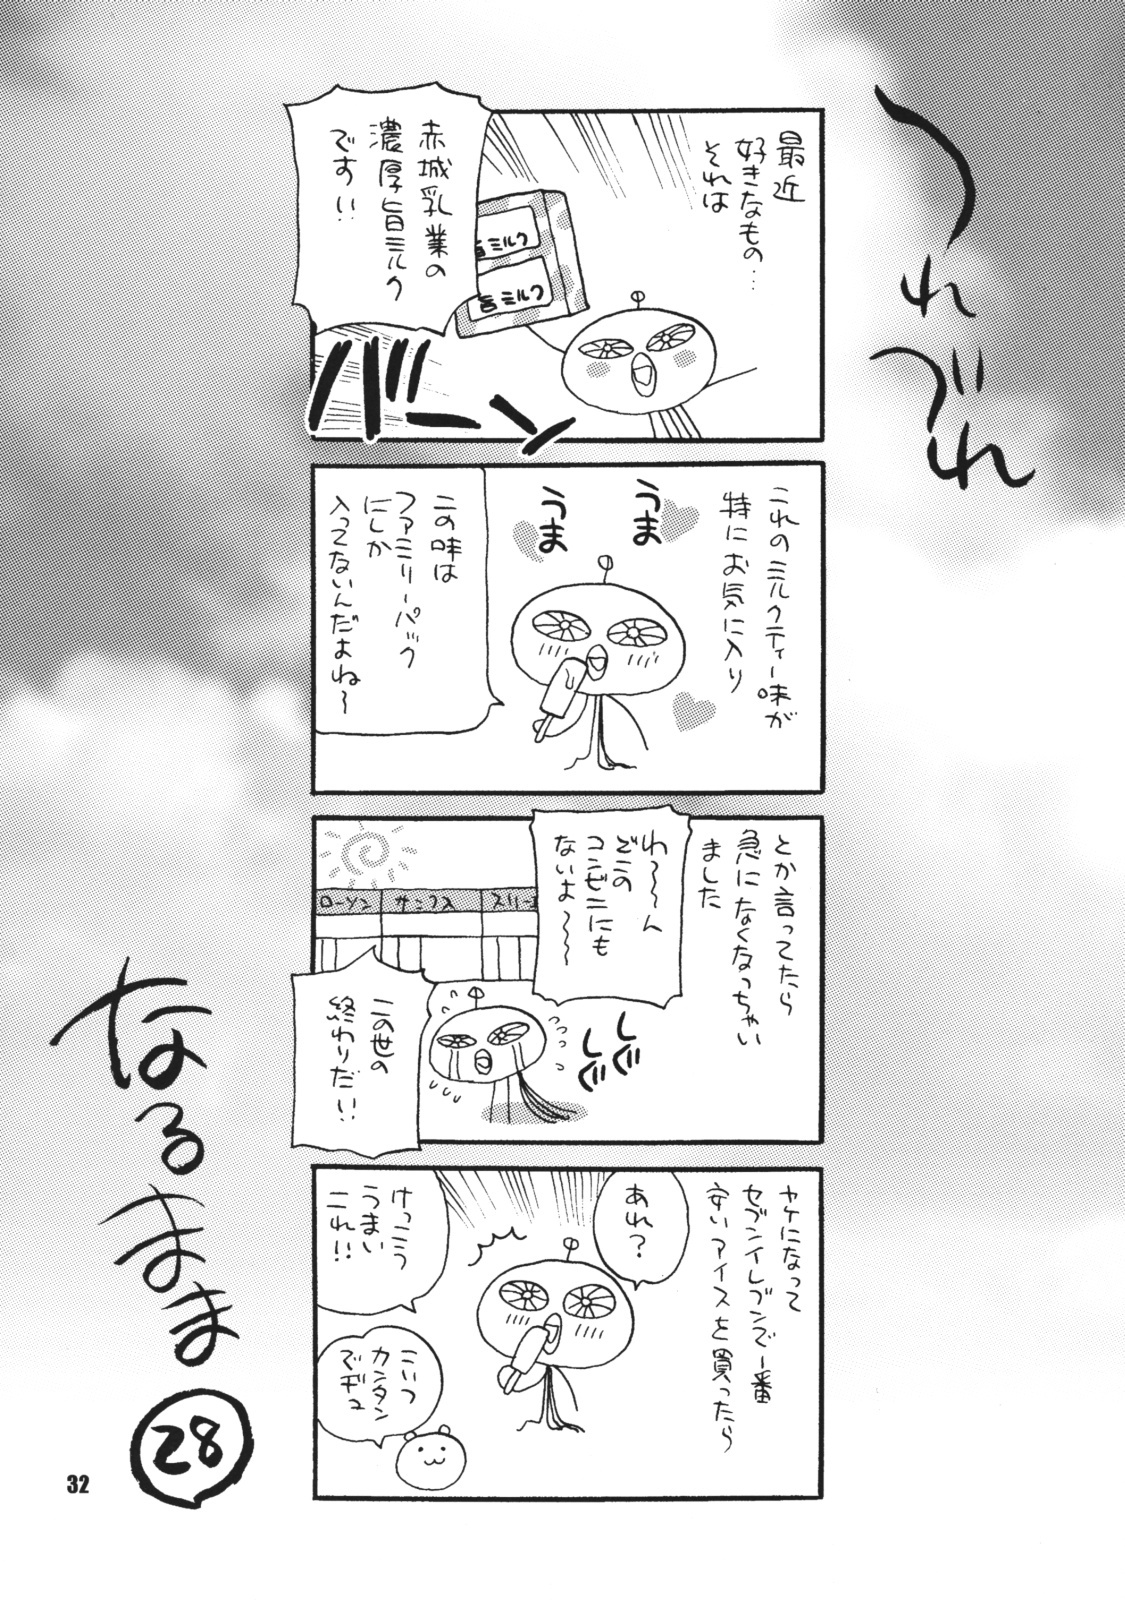 つれづれ
なるまま
28
最近
好きなもの…
それは
赤城乳業の
濃厚旨ミルク
です!!
旨ミルク
旨ミルク
バーン
これのミルクティー味が
特にお気に入り
うま
うま
この味は
ファミリーパック
にしか
入ってないんだよね〜
とか言ってたら
急になくなっちゃい
ました
わ〜〜ん
どこの
コンビニにも
ないよ〜〜〜
ローソン
サンクス
スリーエ
しぐ
しぐ
この世の
終わりだ!!
ヤケになって
セブンイレブンで一番
安いアイスを買ったら
あれ?
けっこう
うまい
これ!!
こいつ
カンタン
でヂュ
32